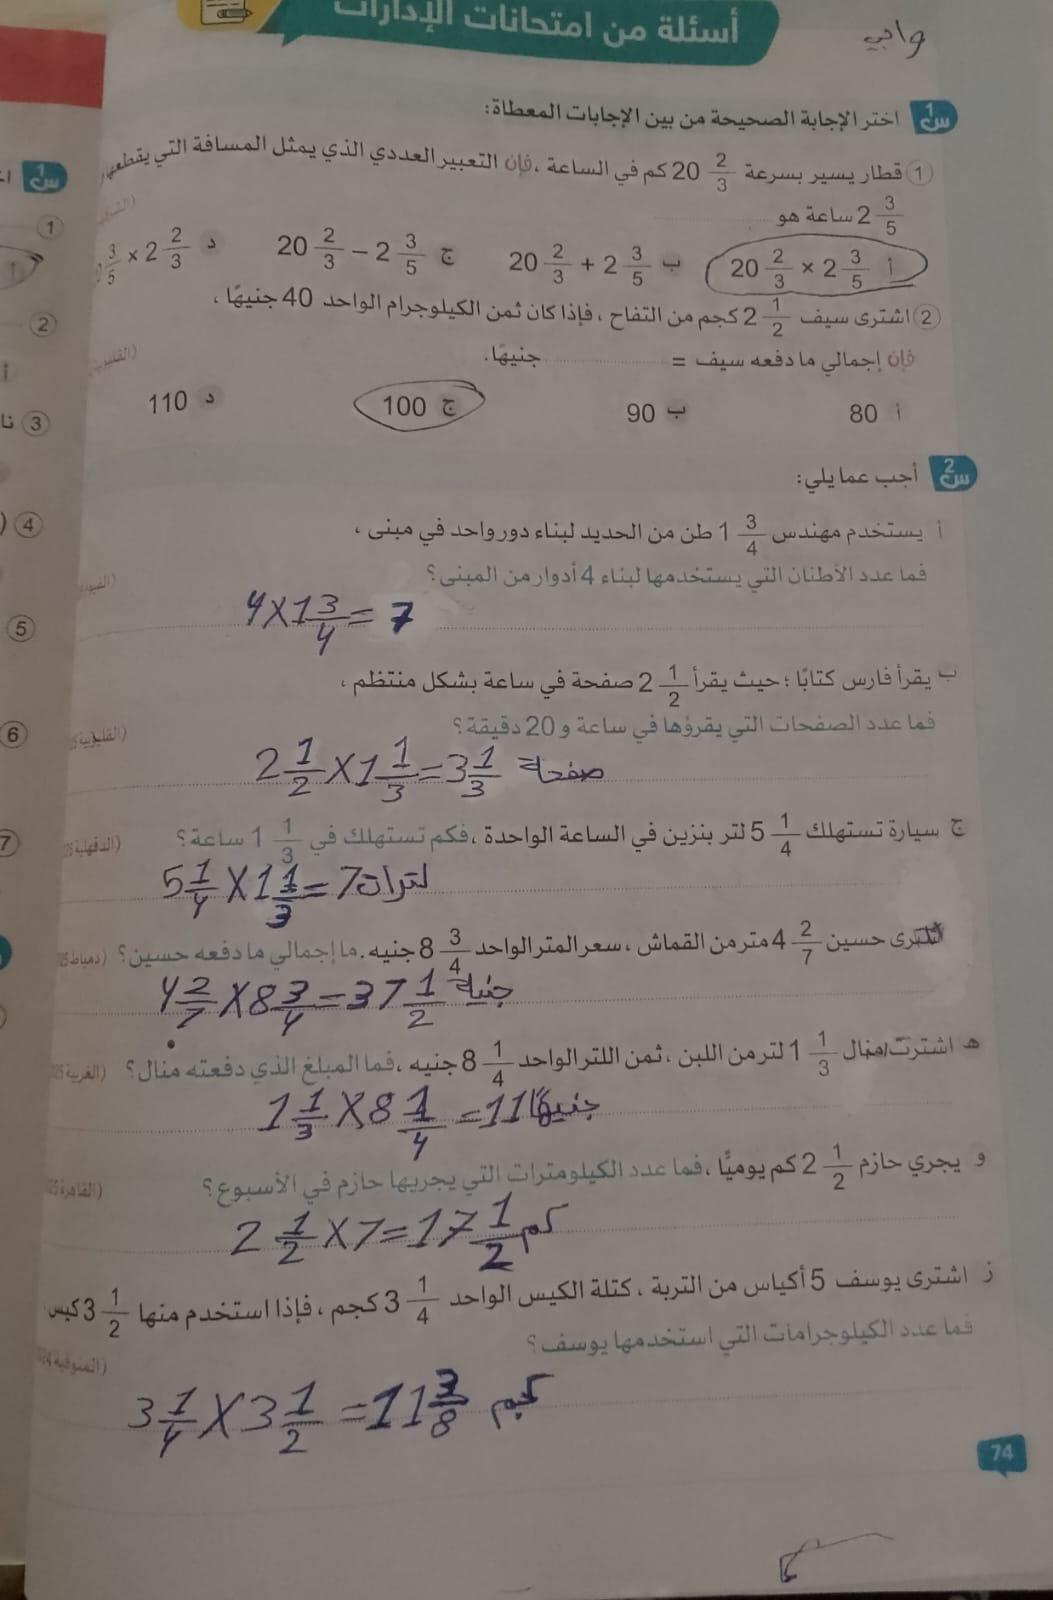 أسئلة من امتحانات الإدارات
واجبي
س1 اختر الإجابة الصحيحة من بين الإجابات المعطاة:
1 قطار يسير بسرعة 20 2/3 كم في الساعة ، فإن التعبير العددي الذي يمثل المسافة التي يقطعها
2 3/5 ساعة هو
أ 20 2/3 × 2 3/5 ب 20 2/3 + 2 3/5 ج 20 2/3 − 2 3/5 د 3/5 × 2 2/3
2 اشترى سيف 2 1/2 كجم من التفاح ، فإذا كان ثمن الكيلوجرام الواحد 40 جنيهًا ،
فإن إجمالي ما دفعه سيف = جنيهًا.
أ 80 ب 90 ج 100 د 110
س2 أجب عما يلي:
أ يستخدم مهندس 1 3/4 طن من الحديد لبناء دور واحد في مبنى ،
فما عدد الأطنان التي يستخدمها لبناء 4 أدوار من المبنى؟
4 × 1 3/4 = 7
ب يقرأ فارس كتابًا ؛ حيث يقرأ 2 1/2 صفحة في ساعة بشكل منتظم ،
فما عدد الصفحات التي يقرؤها في ساعة و 20 دقيقة؟
2 1/2 × 1 1/3 = 3 1/3 صفحة
ج سيارة تستهلك 5 1/4 لتر بنزين في الساعة الواحدة ، فكم تستهلك في 1 1/3 ساعة؟ (الدقهلية
5 1/4 × 1 1/3 = 7 لترات
حسين 4 2/7 متر من القماش ، سعر المتر الواحد 8 3/4 جنيه . ما إجمالي ما دفعه حسين؟ (دمياط
4 2/7 × 8 3/4 = 37 1/2 جنية
هـ اشترت منال 1 1/3 لتر من اللبن ، ثمن اللتر الواحد 8 1/4 جنيه ، فما المبلغ الذي دفعته منال؟ (الغربية
1 1/3 × 8 1/4 = 11 جنيهًا
و يجري حازم 2 1/2 كم يوميًّا ، فما عدد الكيلومترات التي يجريها حازم في الأسبوع؟ (القاهرة
2 1/2 × 7 = 17 1/2 كم
ز اشترى يوسف 5 أكياس من التربة ، كتلة الكيس الواحد 3 1/4 كجم ، فإذا استخدم منها 3 1/2 كيس
فما عدد الكيلوجرامات التي استخدمها يوسف؟ (المنوفية
3 1/4 × 3 1/2 = 11 3/8 كجم
74
س1
1
2
3
4
5
6
7